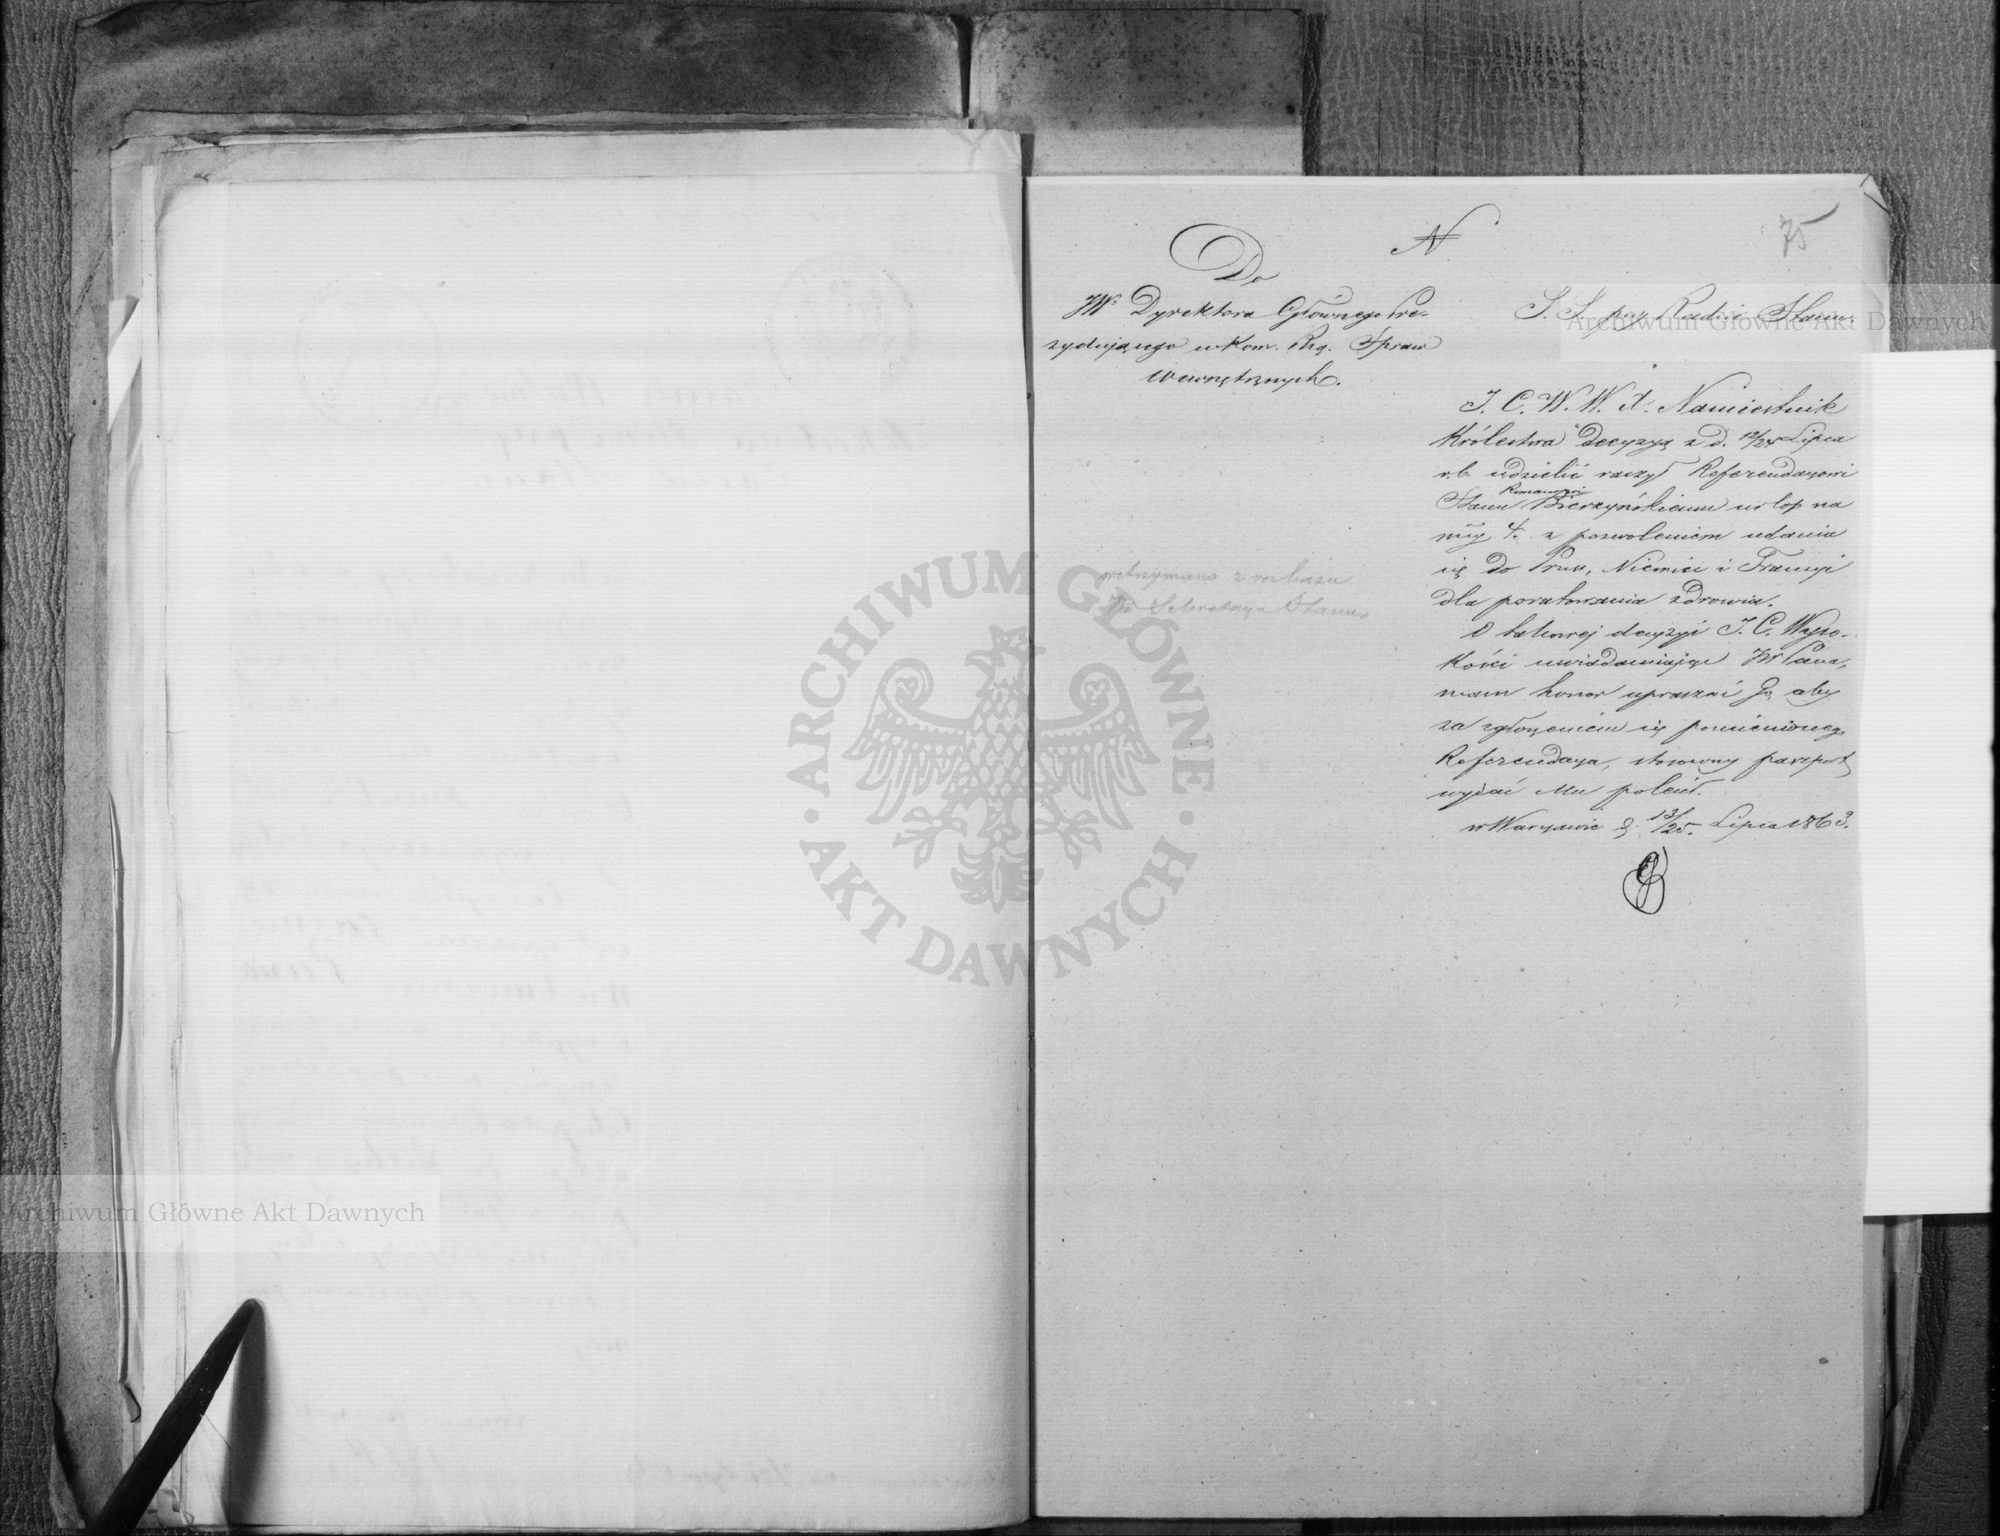 75
N
Do
JW. Dyrektora Głównego Pre-
zydującego w Kom. Rzą. Spraw
Wewnętrznych.
S. S. przy Radzie Stanu.
J. C. W. W. X. Namiestnik
Królestwa decyzyą z d. 12/24 Lipca
r.b. udzielić raczył Referendarzowi
Romanowi
Stanu Bierzyńskiemu urlop na
mcy 4. z pozwoleniem udania
się do Prus, Niemiec i Francyi
dla poratowania zdrowia.
O takowej decyzyi J. C. Wyso-
kości uwiadamiając JW Pana,
mam honor upraszać Go, aby
za zgłoszeniem się pomienionego
Referendarza, stosowny paszport
wydać Mu polecił.
w Warszawie d. 13/25. Lipca 1863.
wstrzymano z rozkazu
JW Sekretarza Stanu
ARCHIWUM GŁÓWNE · AKT DAWNYCH ·
Archiwum Główne Akt Dawnych
Archiwum Główne Akt Dawnych